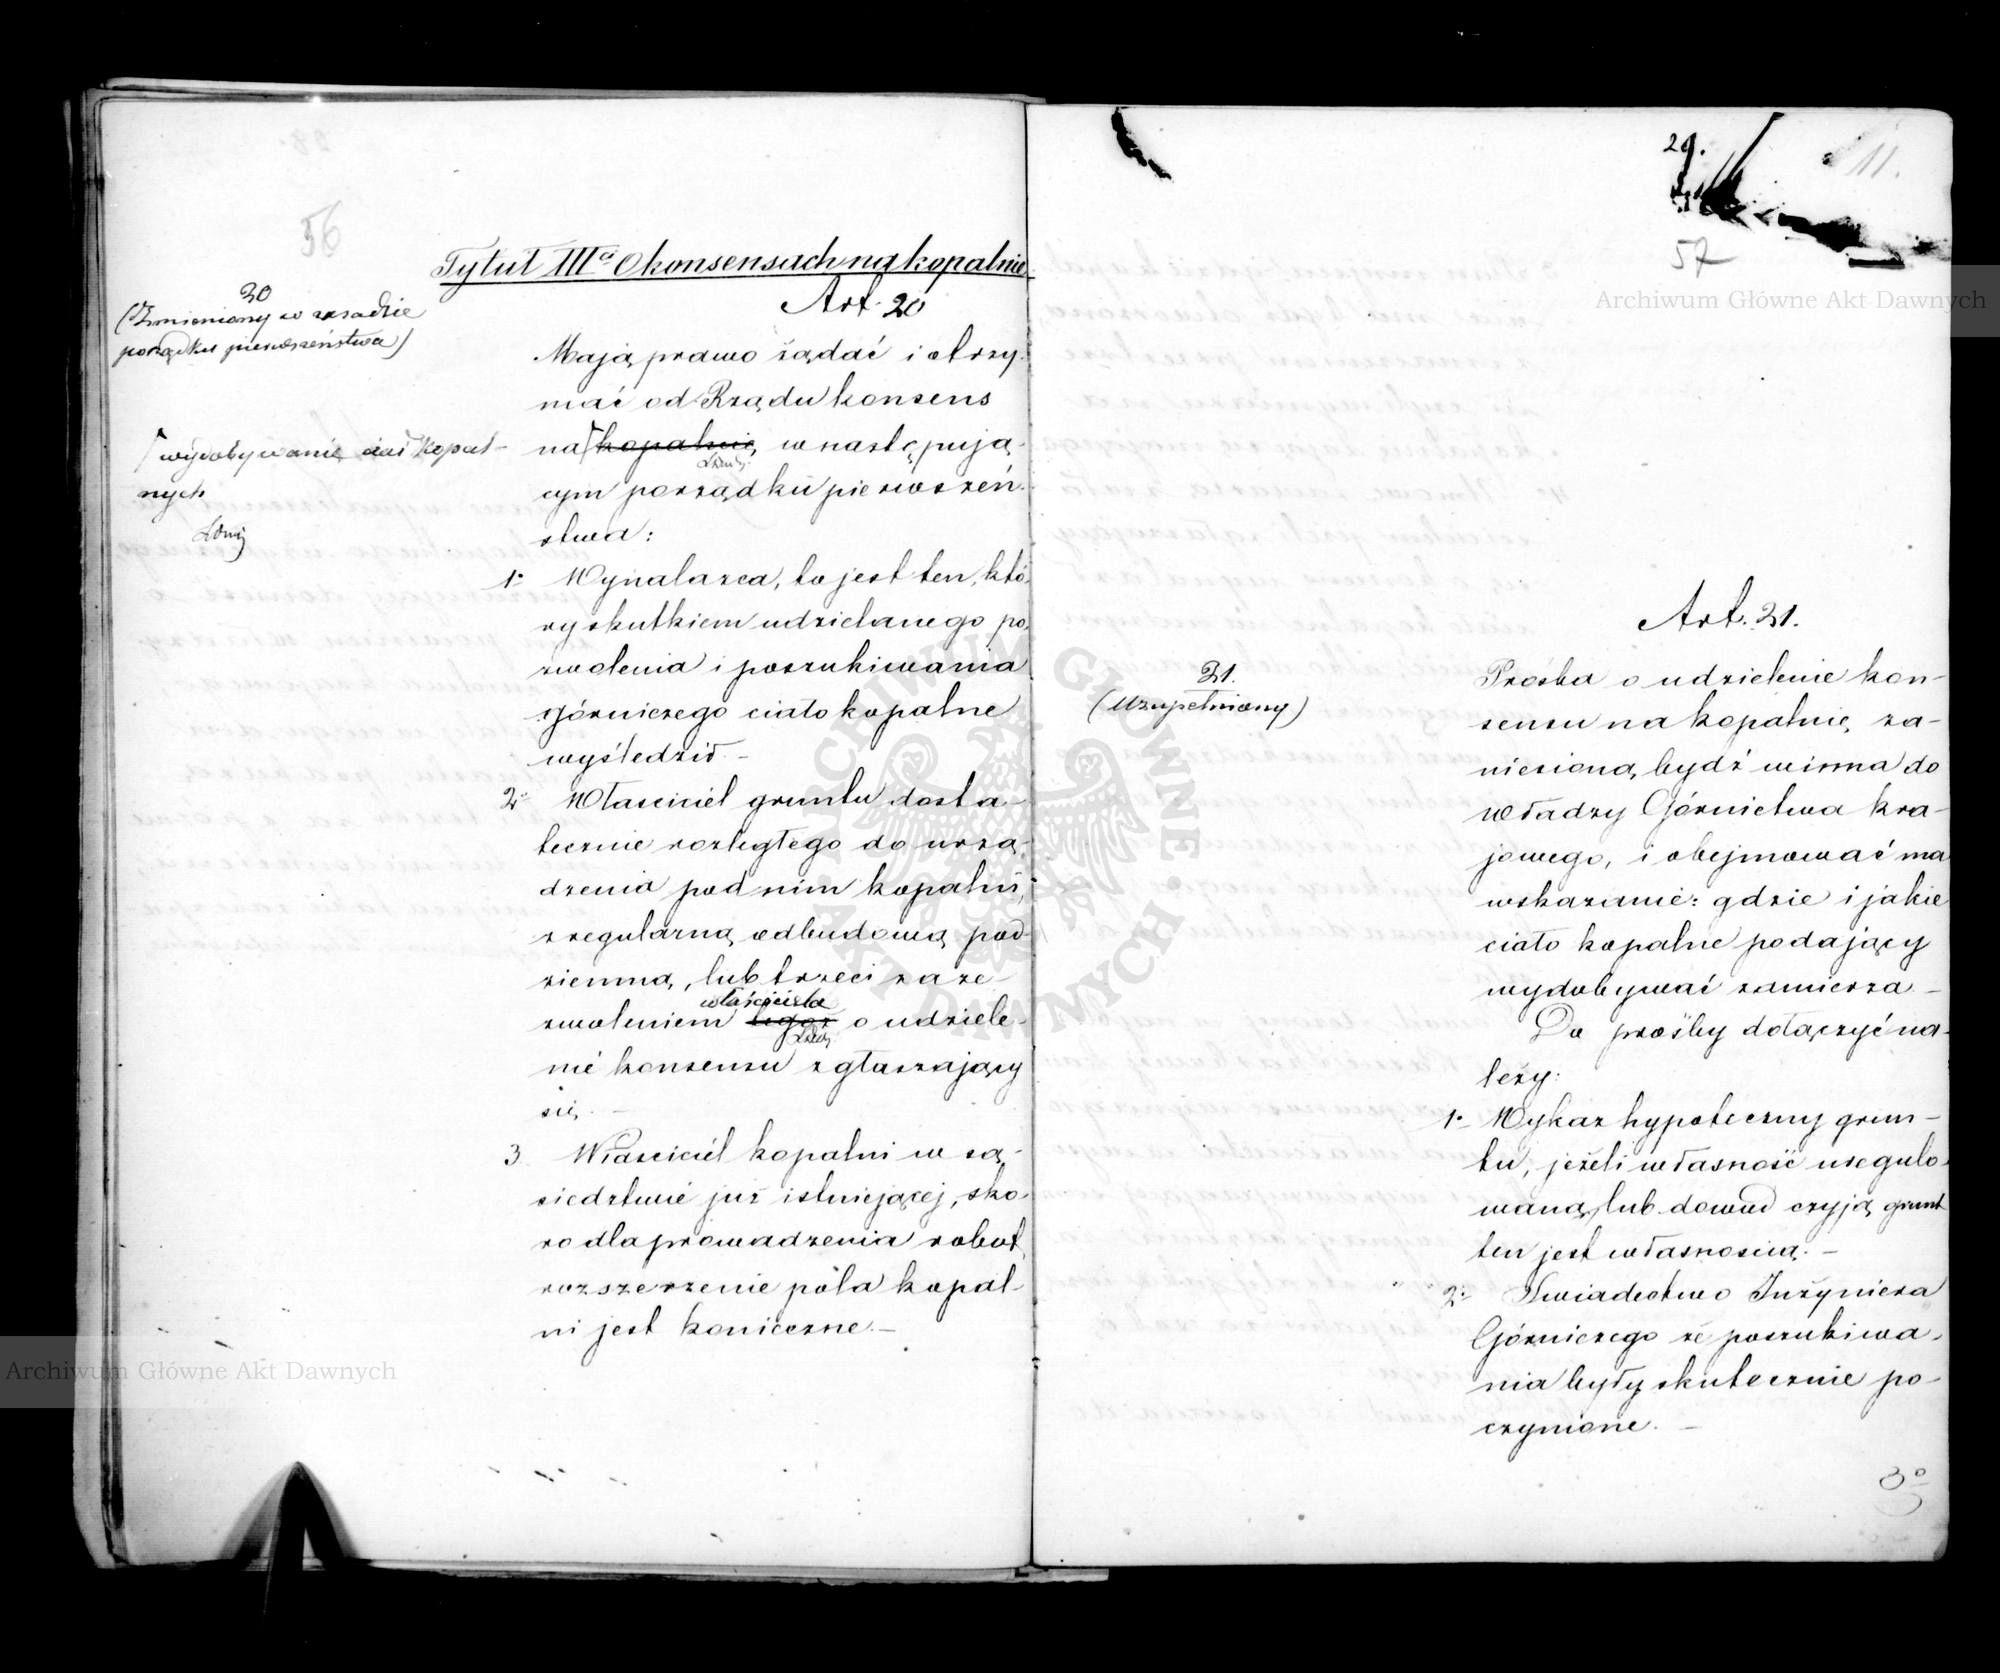 56
Tytuł III° O konsensach na kopalnie
Art. 20
20
(Zmieniony w zasadzie
porządku pierwszeństwa)
Mają prawo żądać i otrzy-
mać od Rządu konsens
na kopalnię, w następują-
wydobywanie ciał kopal-
nych
cym porządku pierwszeń-
stwa:
1° Wynalazca, to jest ten, któ-
ry skutkiem udzielanego po-
zwolenia i poszukiwania
górniczego ciało kopalne
wyśledził. -
2° Właściciel gruntu dosta-
tecznie rozległego do urzą-
dzenia pod nim kopalni,
z regularną odbudową pod-
ziemną, lub trzeci za ze-
właściciela
zwoleniem tegoż o udziele-
nie konsensu zgłaszający
się. -
3. Właściciel kopalni w są-
siedztwie już istniejącej, sko-
ro dla prowadzenia robot
rozszerzenie pola kopal-
ni jest konieczne. -
29.
11.
57
Art. 21.
21.
(Uzupełniony)
Prośba o udzielenie kon-
sensu na kopalnię, za-
niesioną bydź winna do
Władzy Górnictwa kra-
jowego, i obejmować ma
wskazanie: gdzie i jakie
ciało kopalne podający
wydobywać zamierza -
Do prośby dołączyć na-
leży:
1° Wykaz hypoteczny grun-
tu, jeżeli własność uregulo-
waną, lub dowód czyją grunt
ten jest własnością. -
2° Świadectwo Inżyniera
Górniczego że poszukiwa-
nia były skutecznie po-
czynione. -
3°
Archiwum Główne Akt Dawnych
Archiwum Główne Akt Dawnych
ARCHIWUM GŁÓWNE • AKT DAWNYCH •